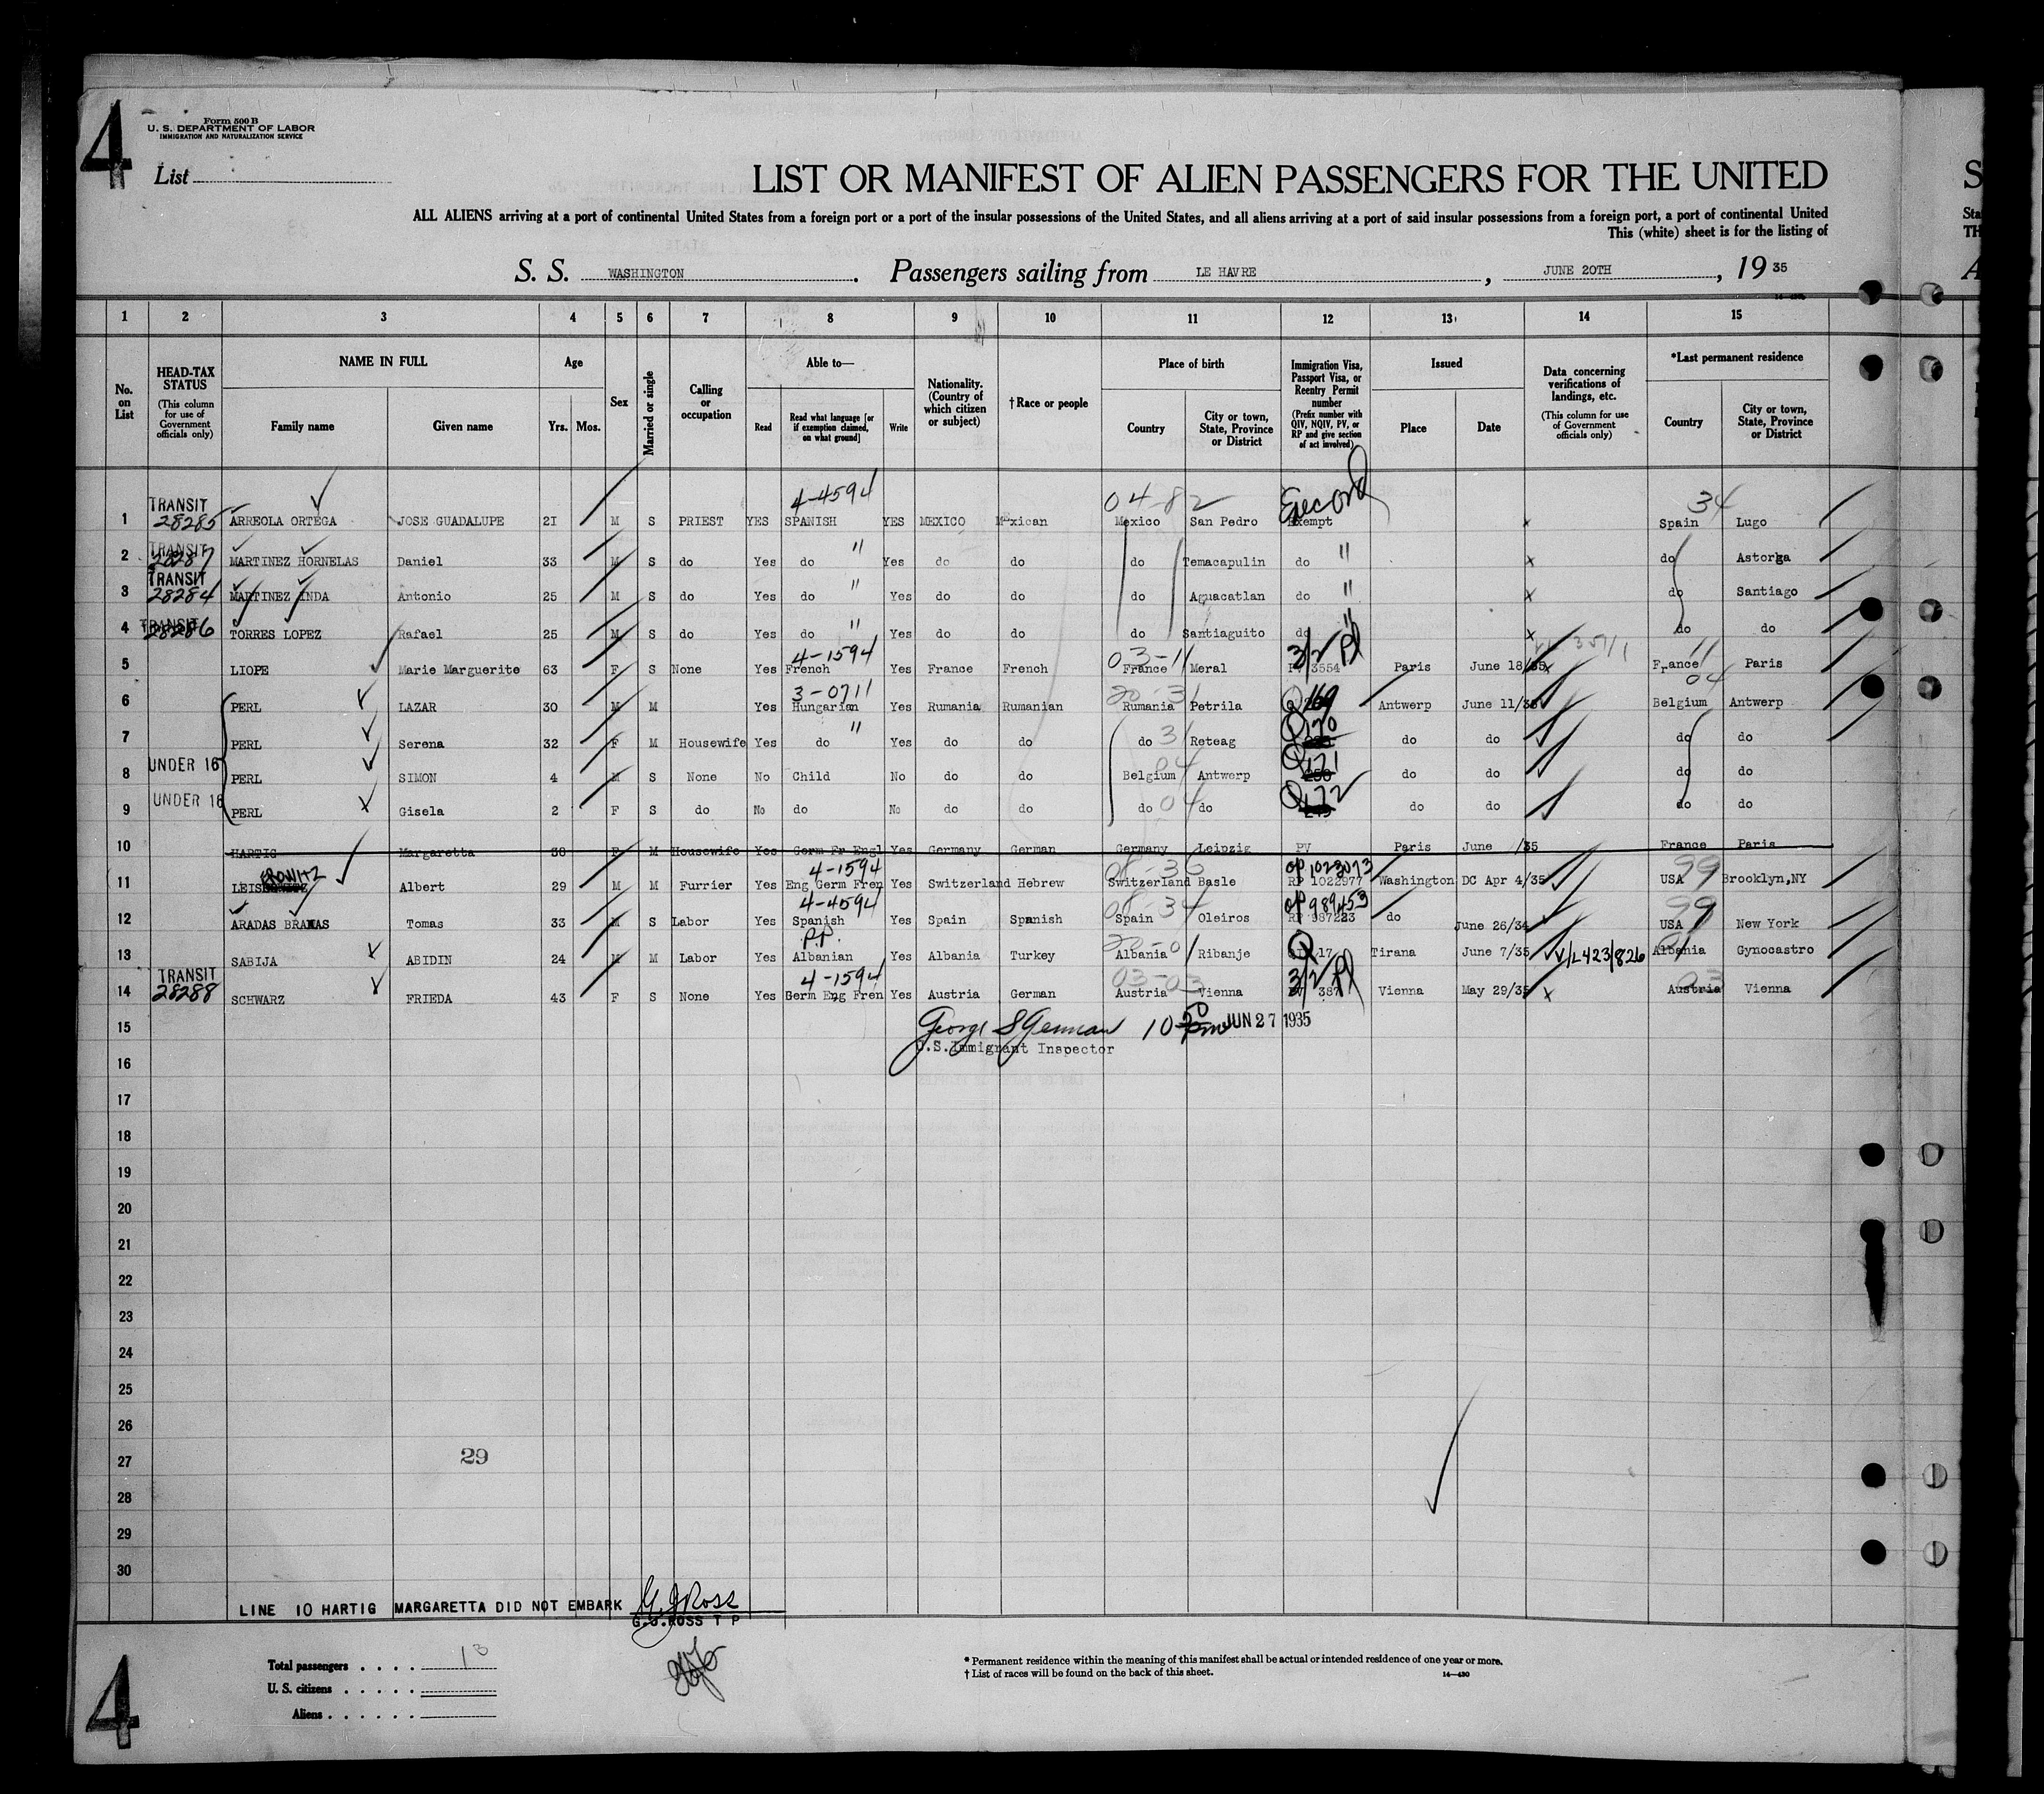 4
Form 500 B
U. S. DEPARTMENT OF LABOR
IMMIGRATION AND NATURALIZATION SERVICE
List
LIST OR MANIFEST OF ALIEN PASSENGERS FOR THE UNITED
ALL ALIENS arriving at a port of continental United States from a foreign port or a port of the insular possessions of the United States, and all aliens arriving at a port of said insular possessions from a foreign port, a port of continental United
This (white) sheet is for the listing of
S. S. WASHINGTON. Passengers sailing from LE HAVRE, JUNE 20TH, 19 35
1 2 3 4 5 6 7 8 9 10 11 12 13 14 15
No. on List
HEAD-TAX STATUS
(This column for use of Government officials only)
NAME IN FULL
Family name Given name
Age
Yrs. Mos.
Sex
Married or single
Calling or occupation
Able to—
Read Read what language [or if exemption claimed, on what ground] Write
Nationality. (Country of which citizen or subject)
†Race or people
Place of birth
Country City or town, State, Province or District
Immigration Visa, Passport Visa, or Reentry Permit number
(Prefix number with QIV, NQIV, PV, or RP and give section of act involved)
Issued
Place Date
Data concerning verifications of landings, etc.
(This column for use of Government officials only)
*Last permanent residence
Country City or town, State, Province or District
TRANSIT 4-4594 04-82 34
1 28285 ARREOLA ORTEGA JOSE GUADALUPE 21 M S PRIEST YES SPANISH YES MEXICO Mexican Mexico San Pedro Exempt x Spain Lugo
TRANSIT
2 28287 MARTINEZ HORNELAS Daniel 33 M S do Yes do " Yes do do do Temacapulin do " x do Astorga
TRANSIT
3 28284 MARTINEZ INDA Antonio 25 M S do Yes do " Yes do do do Aguacatlan do " x do Santiago
TRANSIT
4 28286 TORRES LOPEZ Rafael 25 M S do Yes do " Yes do do do Santiaguito do " x do do
4-1594 03-11 3/2 11
5 LIOPE Marie Marguerite 63 F S None Yes French Yes France French France Meral PV 3554 Paris June 18/35 x France Paris
3-0711 04
6 PERL LAZAR 30 M M Yes Hungarian Yes Rumania Rumanian Rumania Petrila Q 169 Antwerp June 11/35 Belgium Antwerp
7 PERL Serena 32 F M Housewife Yes do " Yes do do do 31 Reteag Q170 do do do do
UNDER 16
8 PERL SIMON 4 M S None No Child No do do Belgium 04 Antwerp Q171 do do do do
UNDER 16
9 PERL Gisela 2 F S do No do No do do do 04 do Q172 do do do do
10 HARTIG Margaretta 38 F M Housewife Yes Germ Fr Engl Yes Germany German Germany Leipzig PV Paris June /35 France Paris
ROWITZ 4-1594 08-36 OP 1023073 99
11 LEIS Albert 29 M M Furrier Yes Eng Germ Fren Yes Switzerland Hebrew Switzerland Basle RP 1022977 Washington DC Apr 4/35 USA Brooklyn,NY
4-4594 08-34 OP 989453 99
12 ARADAS BRAÑAS Tomas 33 M S Labor Yes Spanish Yes Spain Spanish Spain Oleiros RP 987223 do June 26/34 USA New York
P.P.
13 SABIJA ABIDIN 24 M M Labor Yes Albanian Yes Albania Turkey Albania Ribanje Q 17 Tirana June 7/35 V/L423/826 Albania Gynocastro
TRANSIT 4-1594 03-03 3/2 03
14 28288 SCHWARZ FRIEDA 43 F S None Yes Germ Eng Fren Yes Austria German Austria Vienna 387 Vienna May 29/35 x Austria Vienna
15 George S German JUN 27 1935
U.S.Immigrant Inspector
16
17
18
19
20
21
22
23
24
25
26
29
27
28
29
30
LINE 10 HARTIG MARGARETTA DID NOT EMBARK G J Ross
G.J.ROSS T P
4
Total passengers . . . . 13
U. S. citizens . . . . .
Aliens . . . . . .
* Permanent residence within the meaning of this manifest shall be actual or intended residence of one year or more.
† List of races will be found on the back of this sheet.
14—430